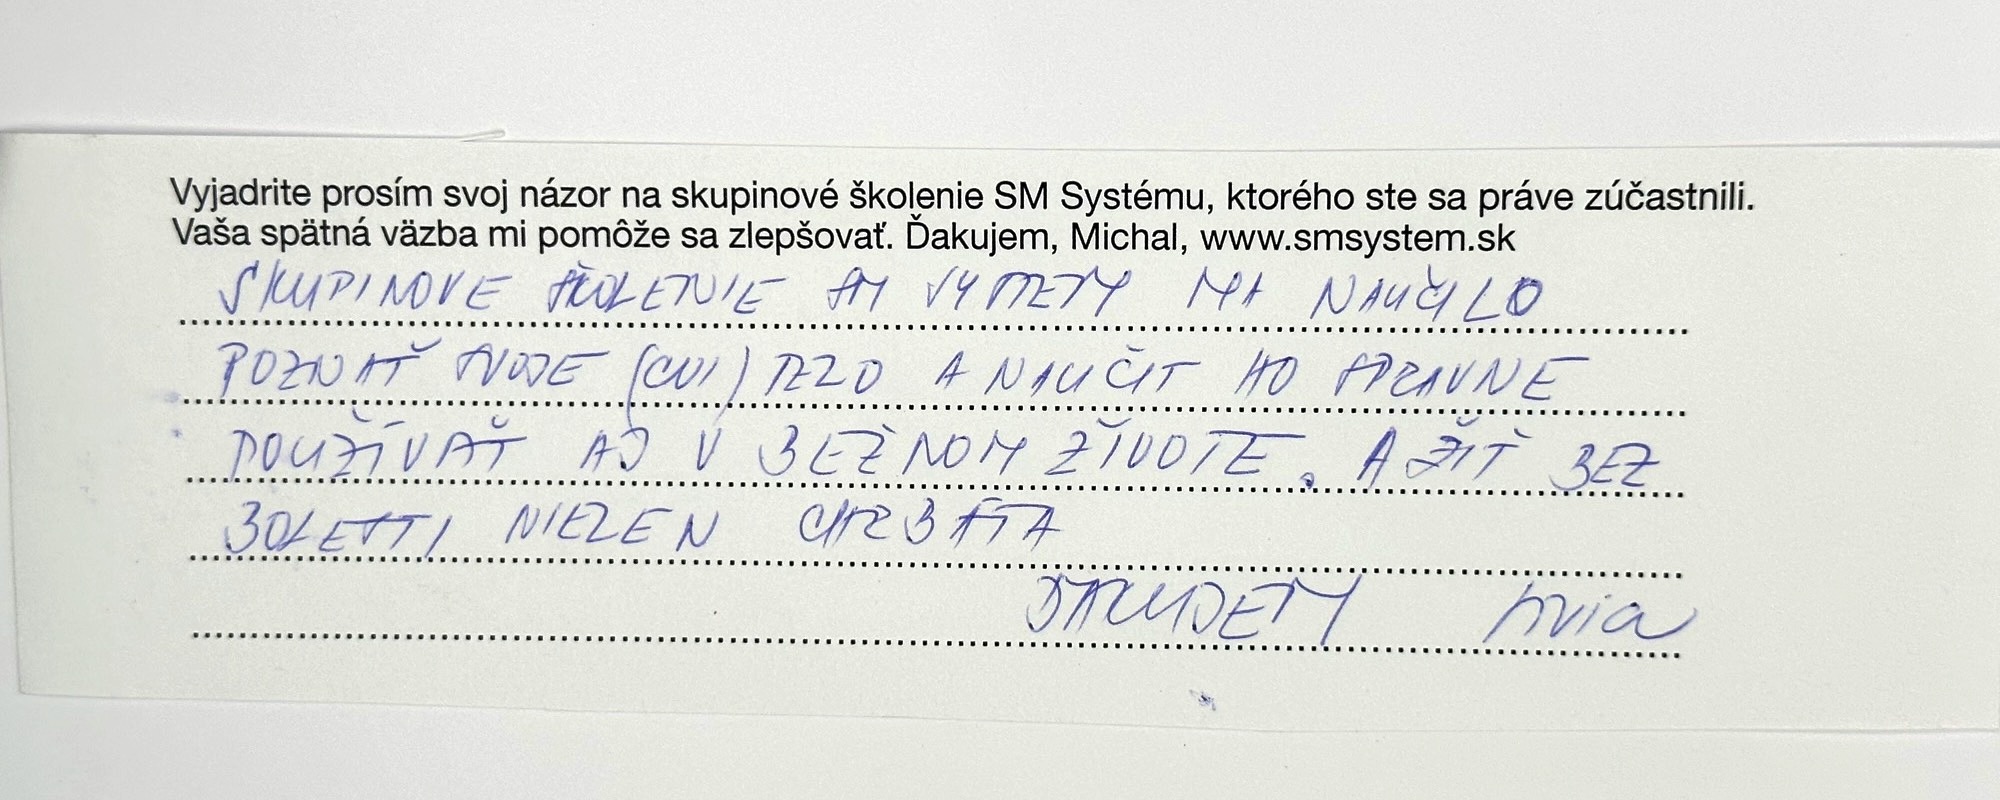 Vyjadrite prosím svoj názor na skupinové školenie SM Systému, ktorého ste sa práve zúčastnili.
Vaša spätná väzba mi pomôže sa zlepšovať. Ďakujem, Michal, www.smsystem.sk
SKUPINOVE ŠKOLENIE SM SYSTEM MA NAUČILO
POZNAŤ SVOJE (CVI) TELO A NAUČIT HO SPRAVNE
POUŽÍVAŤ AJ V BEŽNOM ŽIVOTE. A ŽIŤ BEZ
BOLESTI NIELEN CHRBÁTA
ĎAKUJEM